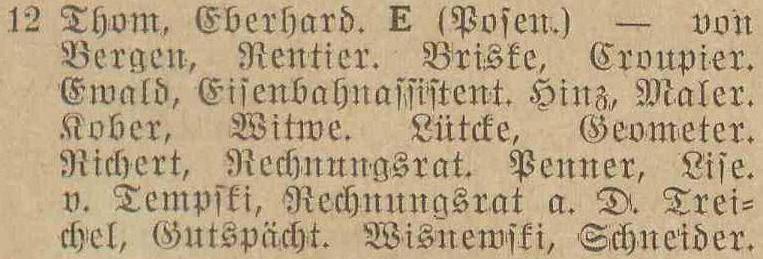 12 Thom, Eberhard. E (Posen.) — von
Bergen, Rentier. Briske, Croupier.
Ewald, Eisenbahnassistent. Hinz, Maler.
Kober, Witwe. Lütcke, Geometer.
Richert, Rechnungsrat. Penner, Lise.
v. Tempski, Rechnungsrat a. D. Trei-
chel, Gutspächt. Wisnewski, Schneider.